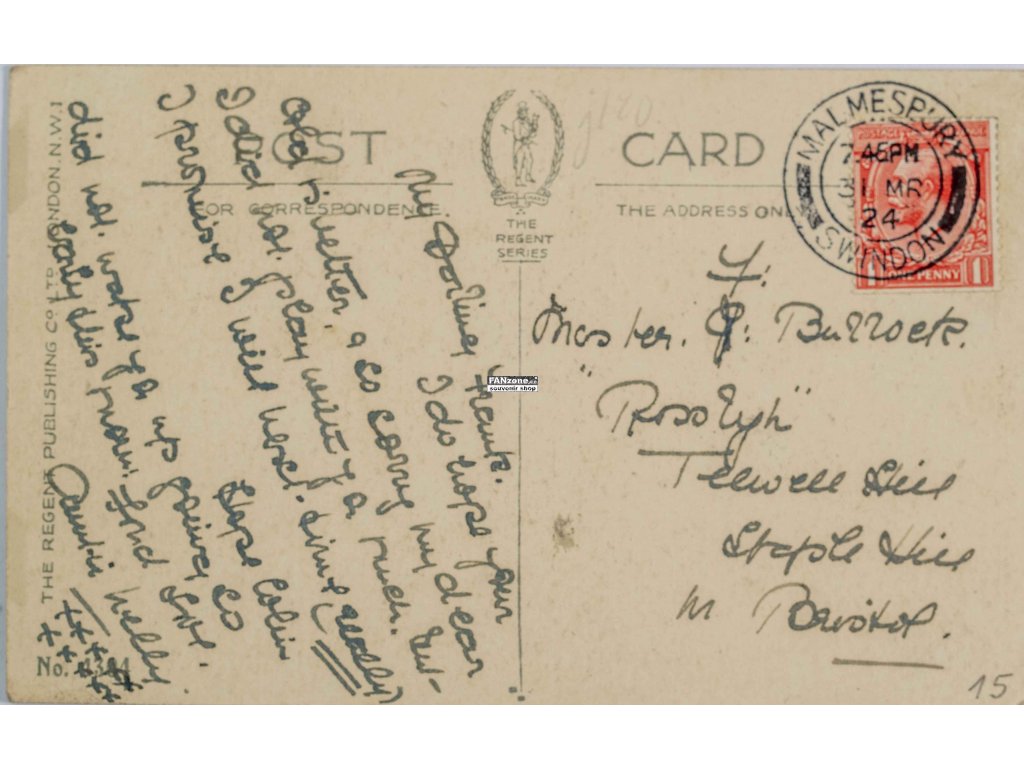 POST CARD
FOR CORRESPONDENCE
THE ADDRESS ONLY
THE
REGENT
SERIES
THE REGENT PUBLISHING CO LTD LONDON. N.W.1
No. 4384
MALMESBURY
7.45PM
31 MR
24
SWINDON
POSTAGE
1 ONE PENNY 1
My Darling Frank.
I do hope your
cold is better, & so sorry my dear
I did not play with you much.
I promise I will next time (really)
Hope Colin
did not wake you up going so
early this morn. Fond love.
Auntie Nelly
F.
Master. J. Bullock.
"Rosslyn"
Hill
Staple Hill
Nr Bristol.
15
FANzone
souvenir shop